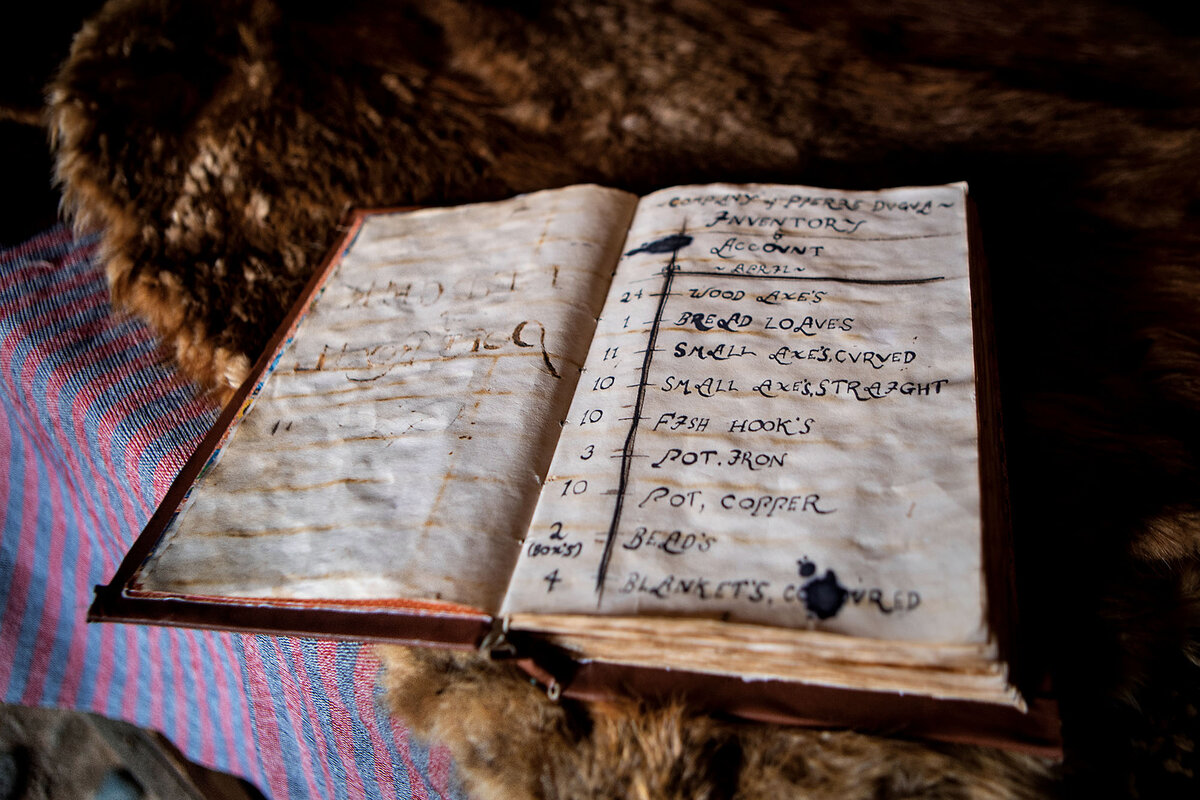 COMPANY of PIERRE DUGUA ~
INVENTORY
&
ACCOUNT
~ APRIL ~
24 WOOD AXE'S
1 BREAD LOAVES
11 SMALL AXE'S, CURVED
10 SMALL AXE'S, STRAIGHT
10 FISH HOOK'S
3 POT, IRON
10 POT, COPPER
2 (BOX'S) BEAD'S
4 BLANKET'S,